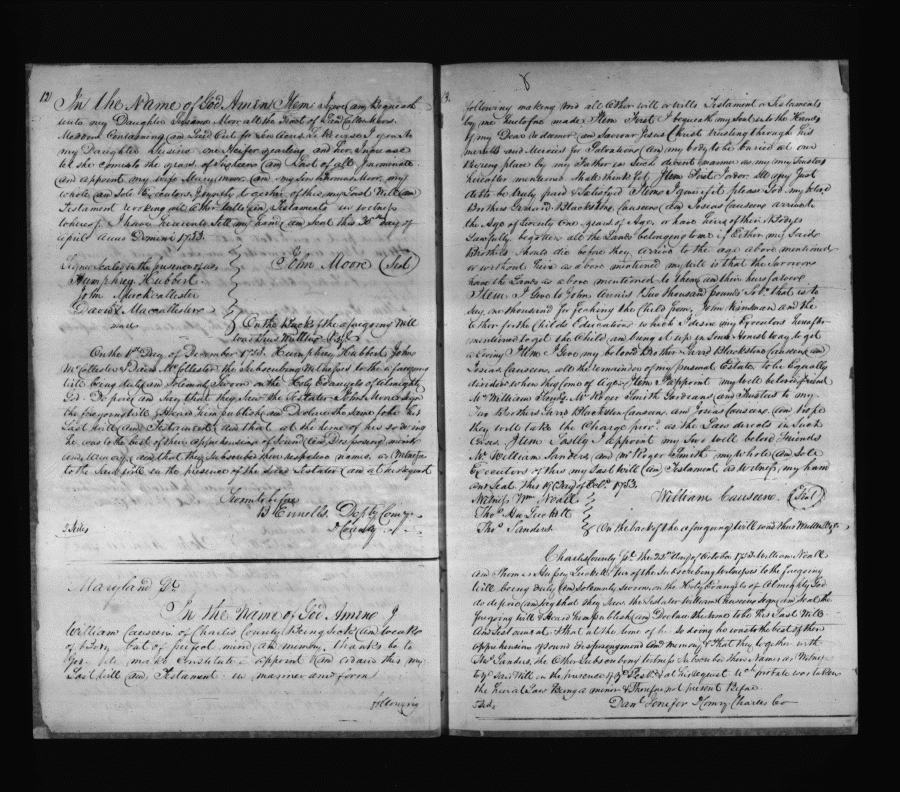 12
In the Name of God Amine Item I give and Bequeath
unto my Daughter Susana Moor all the
Containing and Laid Out for
my Daughter one Heifer yearling and her Increase
and appoint my wife Mary moor and my Son Thomas Moor my
whole and Sole Executors Joyntly together of this my Last Will and
Testament Revoking all other Wills and Testaments in witness
whereof I have hereunto Sett my hand and Seal this 30th day of
april anno Domini 1753
Signd Sealed in the presence of us
John Moore (Seal)
Humphrey Hubbert
John
David Maccollester
On the Back of the aforegoing Will
was thus Written Viz
On the 1st Day of December 1753. Humphrey Hubbert, John
McCollester & David McCollester the Subscribing Witnesses to the aforegoing
Will being duly and Solemnly Sworn on the Holy Evangels of Almighty
God Depose and Say that they Saw the Testator John Moore sign
the foregoing will & Heard him publish and Declare the Same to be his
Last Will and Testament and that at the time of his so doing
he was to the best of their apprehensions of Sound and Disposeing mind
and Memory and that they Subscribed their respective names as Witness
to the Said will in the presence of the Said Testator and at his request
Sworn before
B Ennalls Depty Comry
County
2 Sides
Maryland Ss
In the Name of God Amine I
William Causeen of Charles County Being Sick and weake
of Body but of perfect mind and memory thanks be to
God Do make Constitute appoint and ordain this my
Last will and Testament in manner and form
following
13.
8
following making void all other will or wills Testament or Testaments
by me heretofore made Item First I bequeath my Soul into the Hands
of my Dear Redeemer and Saviour Jesus Christ trusting through his
merritts and Mercies for Salvation and my body to be buried at our
Burying place by my Father in Such decent manner as my Trustees
hereafter mentioned Shall think fit, Item First I order All my Just
debts be truly paid & Satisfied Item I give if it please God my beloved
Brothers Gerard Blackstone Causeen and Josias Causeen arrive at
the Age of twenty One years of Age, or have heirs of their Bodys
Lawfully begotten all the Lands belonging to me if Either my Said
Brothers Should die before they arrive to the age above mentioned
or without heirs as above mentioned my will is that the Survivor
have the Lands as above mentioned to them and their heirs forever
Item I Give to John Annis Two thousand pounds Tobo. that is to
Say, one thousand for fetching the Child from John Kinsman and the
other for the Childs Education which I desire my Executors hereafter
mentioned to get the Child and bring it up in Some Honest way to get
a living Item I Give my beloved Brother Gerd Blackstone Causeen and
Josias Causeen all the remainder of my personal Estate to be Equally
divided when they Come of Age Item I appoint my well beloved friend
Mr William Mr Roger Smith Gardeans and Trustees to my
Two Brothers Gerd Blackston Causeen and Josias Causeen and hope
they will take the Charge as the Law directs in Such
Cases. Item Lastly I appoint my Two well beloved Friends
Mr William Sanders and Mr Roger Smith my whole and Sole
Executors of this my Last Will and Testament as witness my hand
and Seal this Day of Octr 1753
Witness Wm Neall
William Causeen (Seal)
Thos Hu Luckett
Thos Sanders
On the back of the aforegoing Will was thus Written Viz
Charles County Sst. the 23rd Day of October 1753 William Neall
and Thomas Hussey Luckett two of the Subscribing witnesses to the foregoing
will being duly and Solemnly sworn on the Holy Evangels of Almighty God
do depose and say that they Saw the Testator William Causeen Sign and Seal the
foregoing Will & Heard him publish and Declare the same to be his Last Will
and Testament & that at the time of his so doing he was to the best of their
apprehensions of sound & disposing mind and Memory & that they together with
Thos Sanders, the Other Subscribing Witness Subscribed their Names as Witness
to ye Said Will in the presence of ye Testr & at his request wch probate was taken
the heir at Law Being a minor & Therefore not present Before
2 Sides
Danl Jenifer Comry Charles Co